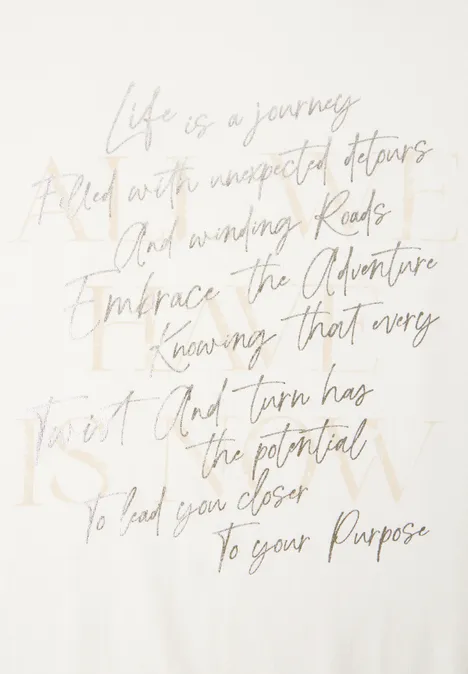 Life is a journey
Filled with unexpected detours
And winding Roads
Embrace the Adventure
Knowing that every
Twist And turn has
the potential
To lead you closer
To your Purpose
ALL WE
HAVE
IS NOW